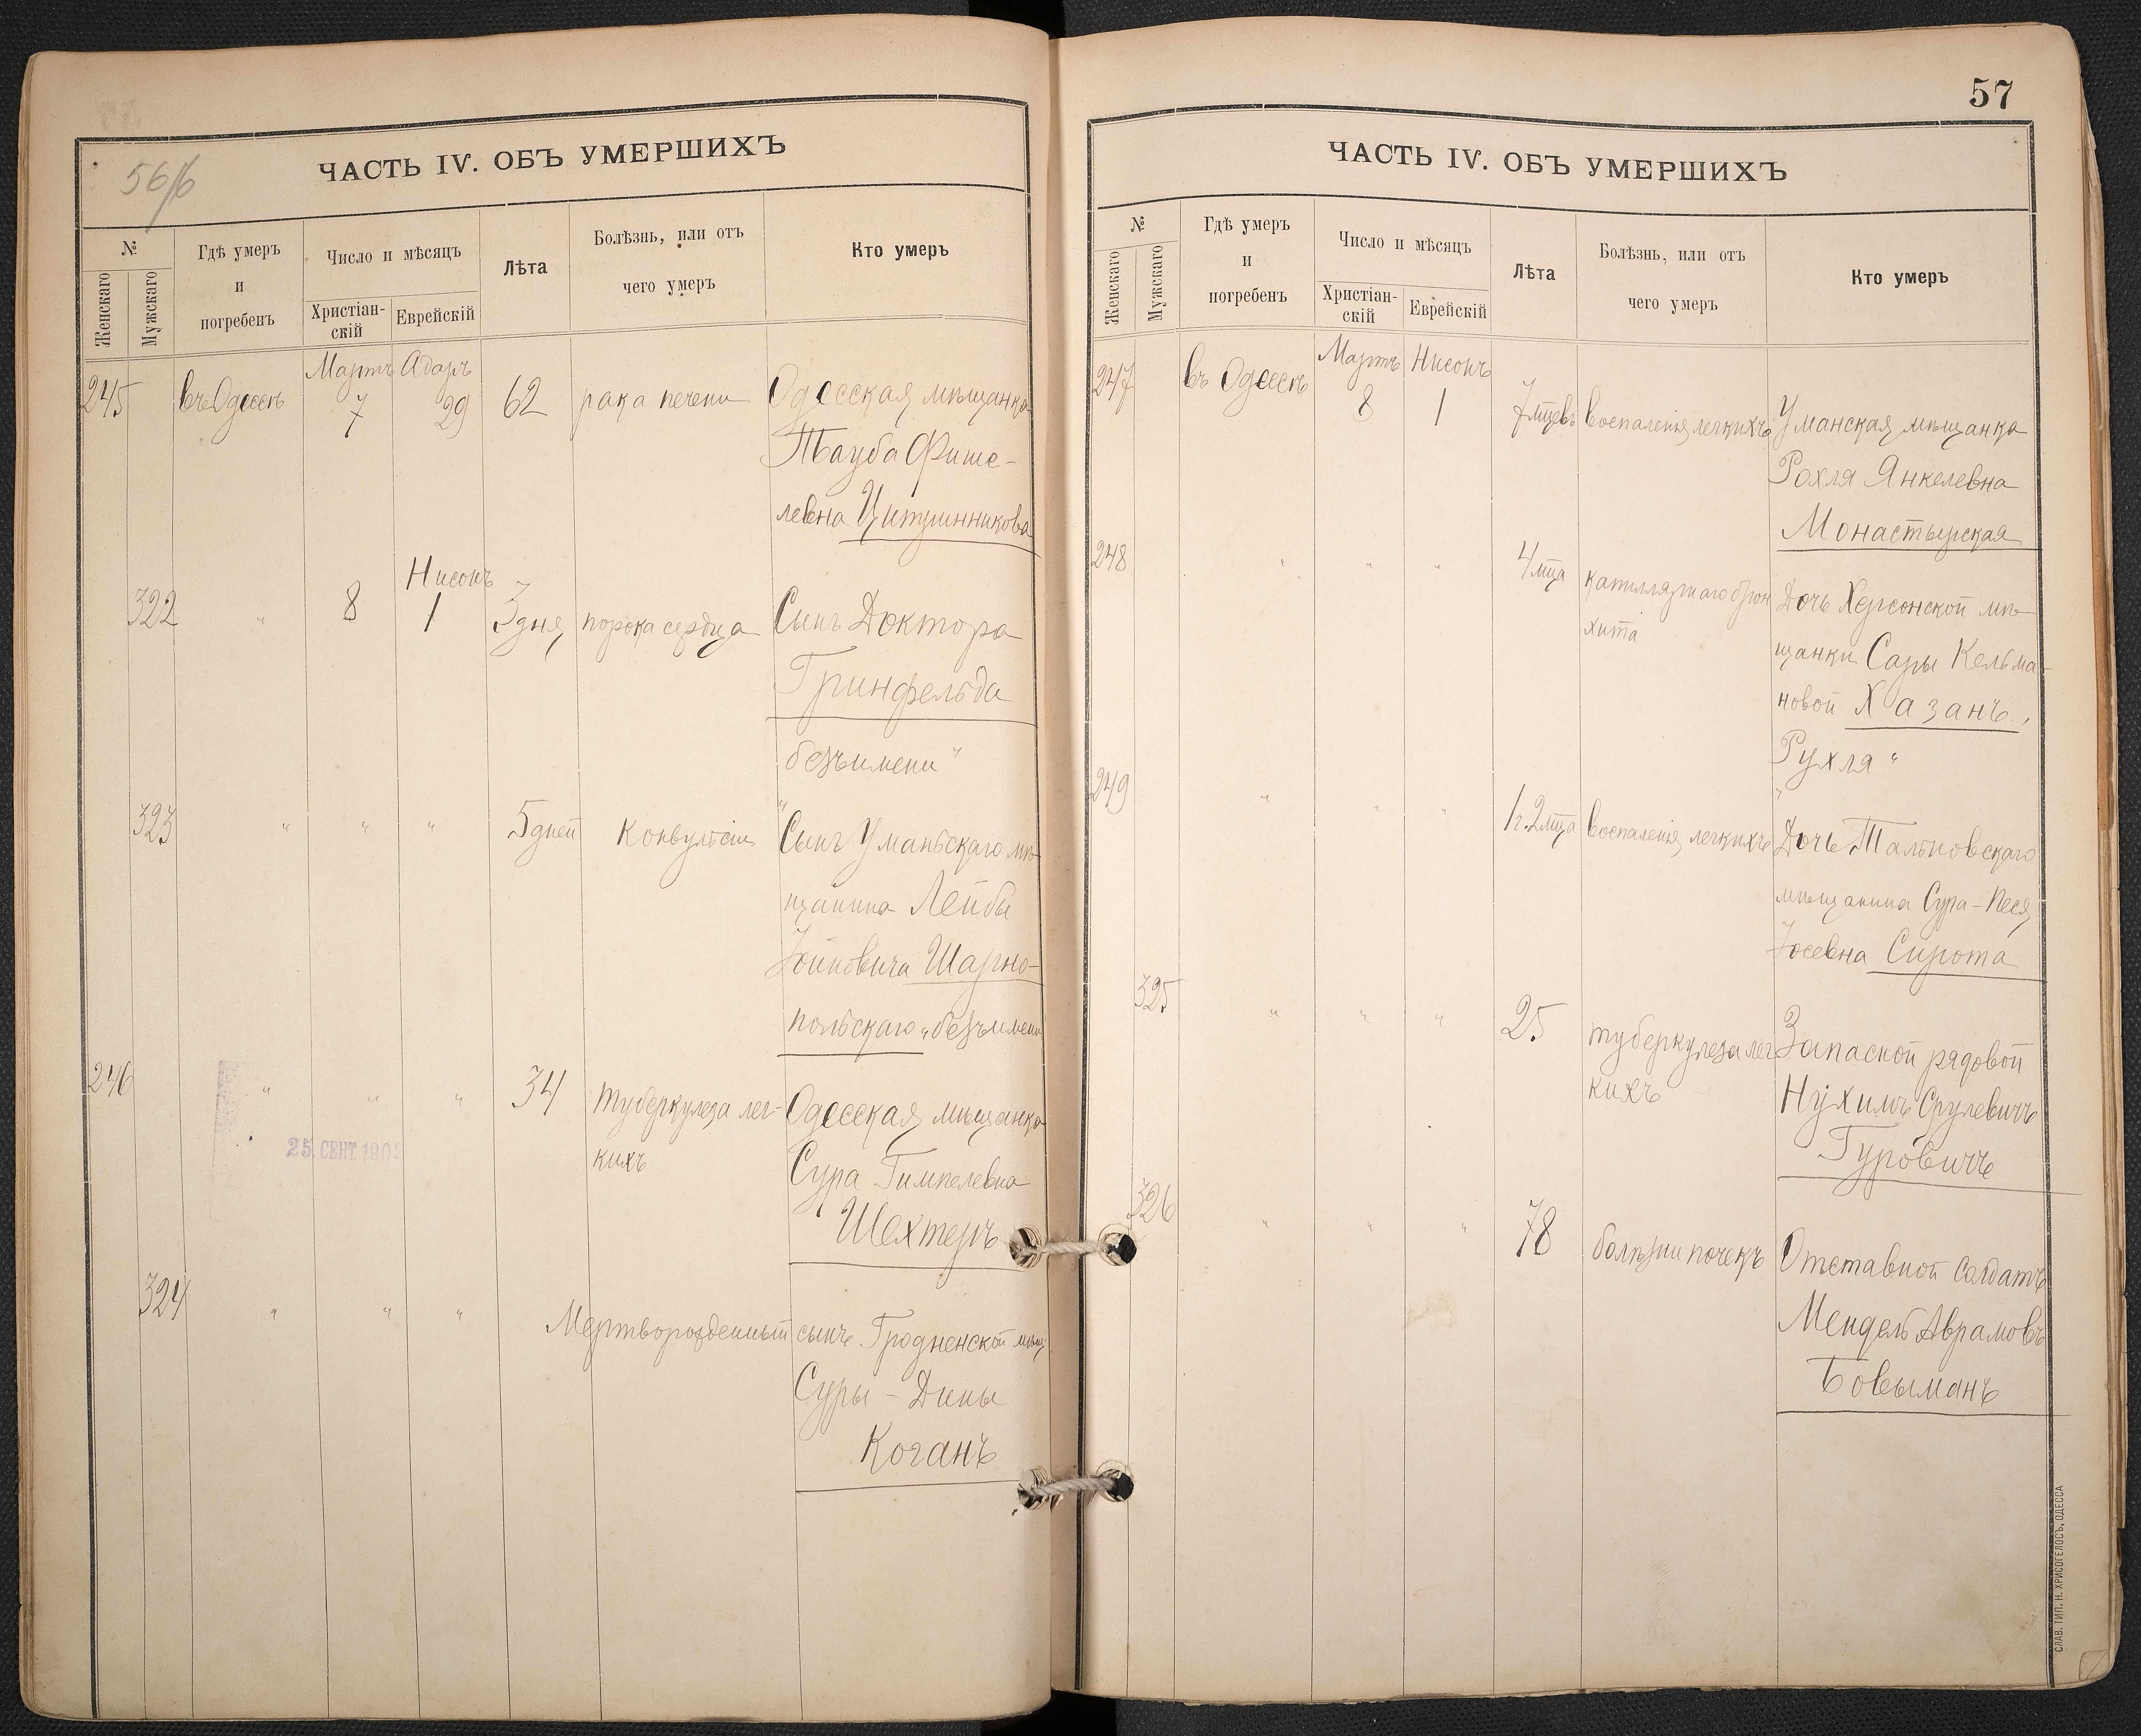 56/б
ЧАСТЬ IV. ОБЪ УМЕРШИХЪ
№
Женскаго
Мужскаго
Гдѣ умеръ
и
погребенъ
Число и мѣсяцъ
Христіан-
скій
Еврейскій
Лѣта
Болѣзнь, или отъ
чего умеръ
Кто умеръ
Мартъ Адаръ
245 въ Одессѣ 7 29 62 рака печени Одесская мѣщанка
Тауба Фише-
левна
Нисонъ
322 " 8 1 3 дня порока сердца Сынъ Доктора
Гринфельда
безъ имени "
323 " " " 5 дней Конвульсіи "Сынъ Уманьскаго мѣ-
щанина Лейбы
Шарно-
польскаго "безъ имени
246 " " " 34 туберкулеза лег- Одесская мѣщанка
кихъ Сура Гимпелевна
Шехтеръ
25. СЕНТ 1902
324 " " " Мертворожденный сынъ Гродненской мѣщ.
Суры - Дины
Коганъ
57
ЧАСТЬ IV. ОБЪ УМЕРШИХЪ
№
Женскаго
Мужскаго
Гдѣ умеръ
и
погребенъ
Число и мѣсяцъ
Христіан-
скій
Еврейскій
Лѣта
Болѣзнь, или отъ
чего умеръ
Кто умеръ
Мартъ Нисонъ
247 въ Одессѣ 8 1 7 мцевъ воспаленія легкихъ Уманская мѣщанка
Рохля Янкелевна
Монастырская
248 " " " 4 мца капиллярнаго брон Дочь Херсонской мѣ-
хита щанки Сары Кельма-
новой Хазанъ,
Рухля "
249 " " " 1 г. 2 мца воспаленія легкихъ "Дочь Тальновскаго
мѣщанина Сура - Песя
Іосевна Сирота
325 " " " 25 туберкулеза лег Запасной рядовой
кихъ Нухимъ Срулевичъ
Гуровичъ
326 " " " 78 болѣзни почекъ Отставной солдатъ
Мендель Аврамовъ
Бовыманъ
СЛАВ. ТИП. Н. ХРИСОГЕЛОСЪ, ОДЕССА